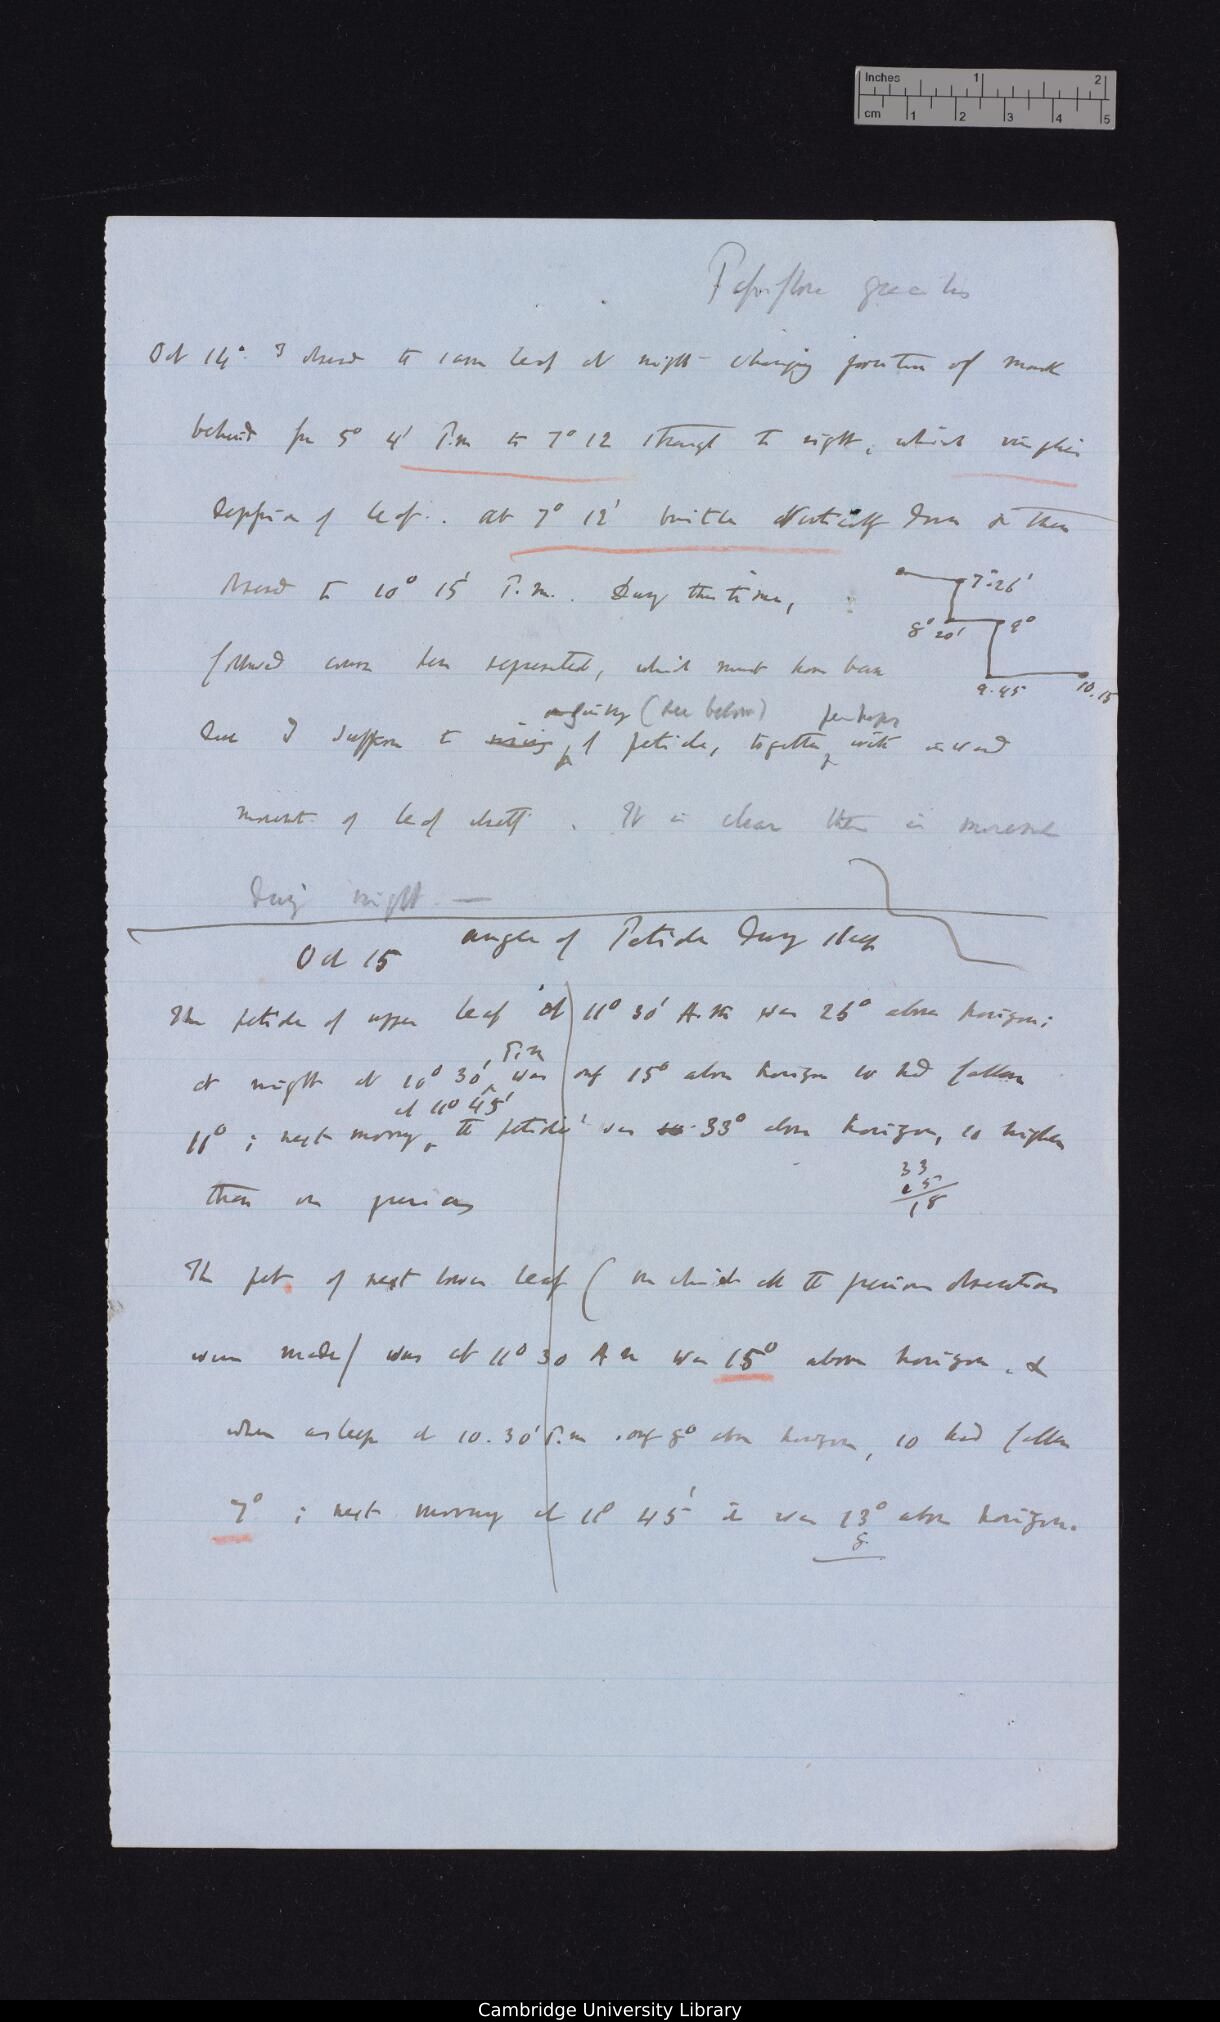 Inches 1 2
cm 1 2 3 4 5
Passiflora gracilis
Oct 14° I observed the same leaf at night changing position of mark
behind from 5° 4' P.m to 7° 12 straight to right, which implies
depression of leaf. At 7° 12' vertically down & then
observed to 10° 15' P.m. During this time,
7° 26'
8° 20' 9°
9.45 10.15
followed course here represented, which must have been
(see below) perhaps
due I suppose to rising of petiole, together with inward
movement of leaf itself. It is clear there is movement
During night —
Oct 15 Angle of Petiole During sleep
The petiole of upper leaf at 11° 30' A.m was 26° above horizon;
at night at 10° 30' P.m was only 15° above horizon so had fallen
11°; next morning at 11° 45' the petiole was 33° above horizon, so higher
than on previous
33
15
18
The pet of next lower leaf (on which all the previous observations
were made) was at 11° 30 A m was 15° above horizon, &
when asleep at 10.30' P.m only 8° above horizon, so had fallen
7°; next morning at 11° 45' it was 23° above horizon.
8
Cambridge University Library